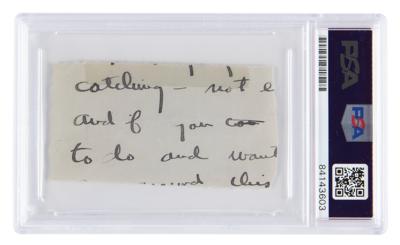 catching — not e
and if you can
to do and want
this
PSA
PSA
84143603